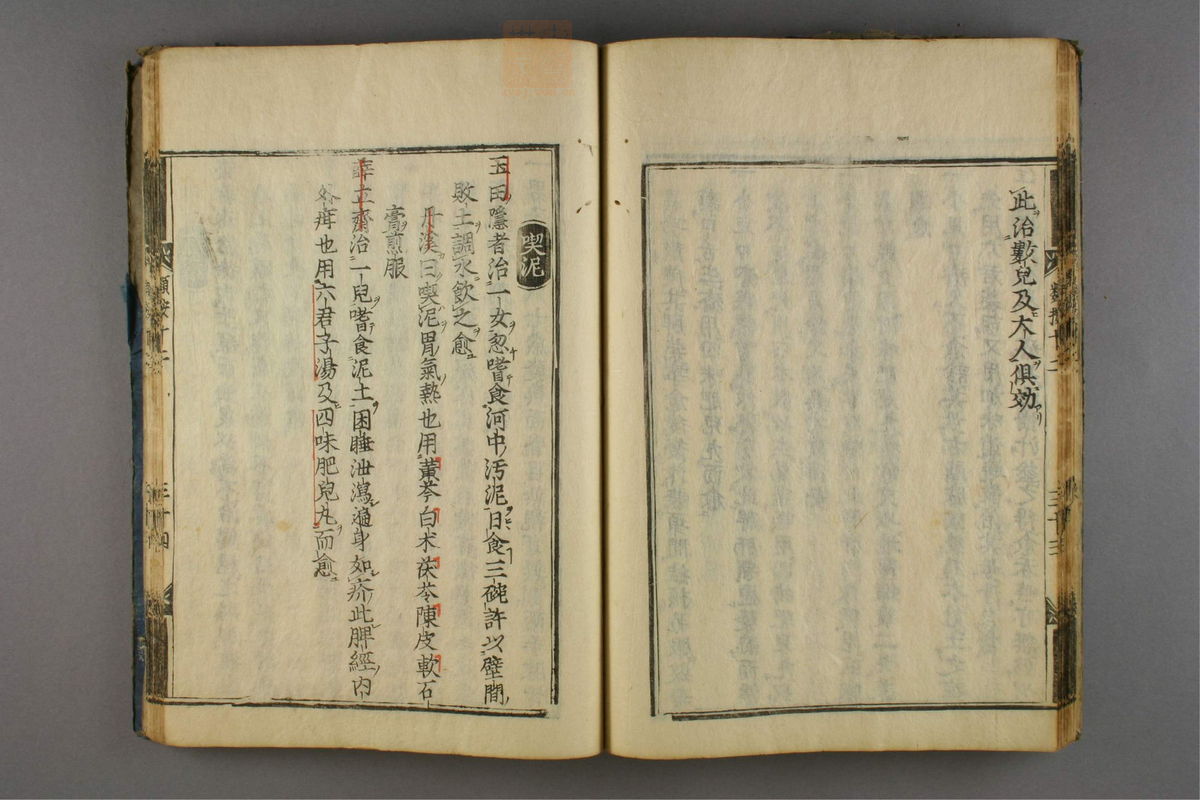 此治數兒及大人俱効
喫泥
玉田隱者治一女忽嗜食河中汚泥日食三碗許以壁間
敗土調水飲之愈
丹溪曰喫泥胃氣熱也用黃芩白术茯苓陳皮軟石
膏煎服
薛立齋治一兒嗜食泥土困睡泄瀉遍身如疥此脾經内
外疳也用六君子湯及四味肥兒丸而愈